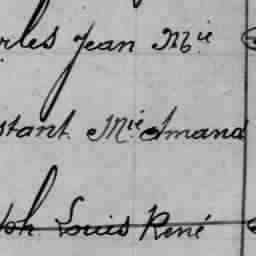 rles Jean Mie
stant Mie Amand
ph Louis René